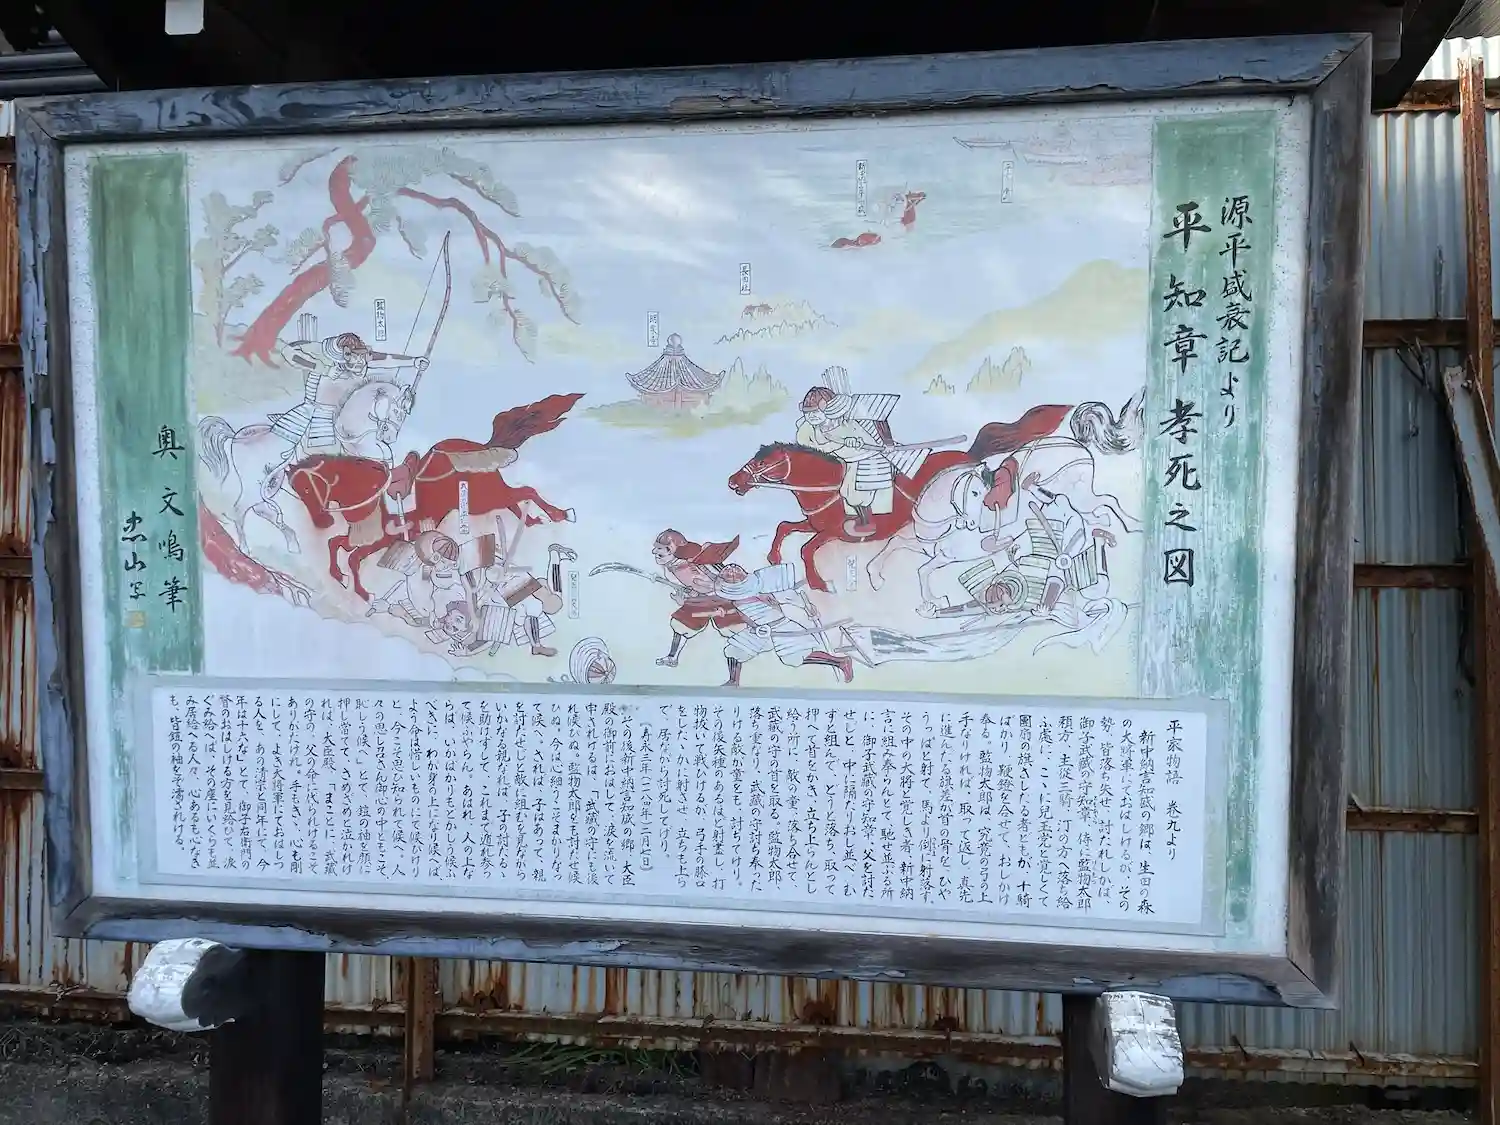 源平盛衰記より
平知章孝死之図
新中納言知盛
長田社
明泉寺
監物太郎
奥文鳴筆
忠山写
平家物語 巻九より
新中納言知盛の郷は、生田の森
の大将軍にておはしけるが、その
勢、皆落ち失せ、討たれしかば、
御子武蔵の守知章、侍に監物太郎
頼方、主従三騎、汀の方へ落ち給
ふ處に、こゝに児玉党と覚しくて
團扇の旗さしたる者どもが、十騎
ばかり、鞭鐙を合せて、おしかけ
奉る。監物太郎は、究竟の弓の上
手なりければ、取って返し、真先
に進んだる旗差が首の骨を、ひや
うつばと射て、馬より倒に射落す。
その中の大将と覚しき者、新中納
言に組み奉らんとて、馳せ並ぶる所
に、御子武蔵の守知章、父を討た
せじと、中に隔たりおし並べ、む
ずと組んで、どうと落ち、取って
押へて首をかき、立ち上らんとし
給う所に、敵の童、落ち合せて、
武蔵の守の首を取る。監物太郎、
落ち重なり、武蔵の守討ち奉った
りける敵が童をも、討ちてけり。
その後矢種のあるほど射尽し、打
物抜いて戦ひけるが、弓手の膝口
をしたゝかに射させ、立ちも上ら
で、居ながら討死してけり。
（寿永三年（一一八四年）二月七日）
その後新中納言知盛の郷、大臣
殿の御前におはして、涙を流いて
申されけるは、「武蔵の守にも後
れ候ひぬ。監物太郎をも討たせ候
ひぬ。今は心細うこそまかりなつ
て候へ。されば、子はあって、親
を討たせじと敵に組むを見ながら
いかなる親なれば、子の討たるゝ
を助けずして、これまで遁れ参っ
て候ふやらん。あはれ、人の上な
らば、いかばかりもどかしう候ふ
べきに、わが身の上になり候へば、
よう命は惜しいものにて候ひけり
と、今こそ思ひ知られて候へ。人
々の思し召さん御心の中どもこそ、
恥しう候へ」とて、鎧の袖を顔に
押し當てて、さめざめと泣かれけ
れば、大臣殿、「まことに、武蔵
の守の、父の命に代られけるこそ
ありがたけれ。手もきき、心も剛
にして、よき大将軍にておはしつ
る人を。あの清宗と同年にて、今
年は十六な」とて、御子右衛門の
督のおはしける方を見給ひて、涙
ぐみ給へば、その座にいくらも並
み居給へる人々、心あるも心なき
も、皆鎧の袖をぞ濡されける。